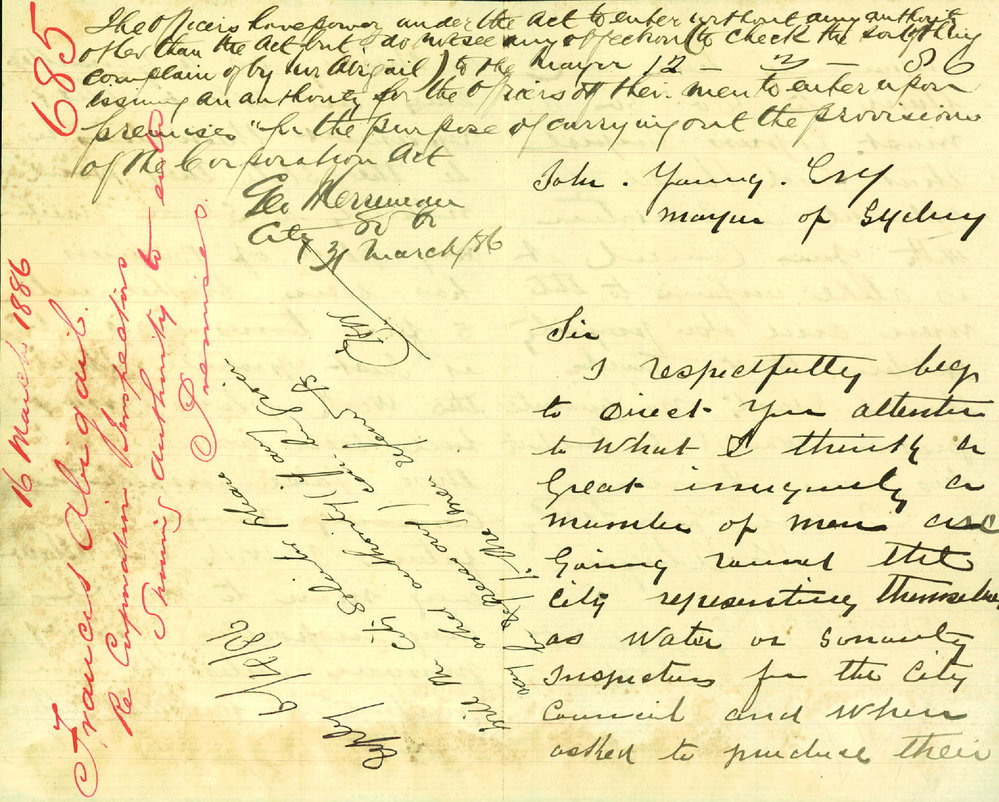 The Officers have power under the Act to enter without any authority
other than the Act but I do not see any objection to check the sort of thing
complain of by Mr Abigail) to the Mayor
issuing an authority for the Officers & their men to enter upon
premises "for the purpose of carrying out the provisions
of the Corporation Act
Geo Merriman
City
31 March/86
12 - 3 - 86
John. Young. Esq
Mayor of Sydney
Sir
I respectfully beg
to Direct You attention
to What I think a
Great iniquely a
number of men are
Going round the
City representing themselves
as Water or Sanarity
Inspectors for the City
Council and When
asked to produce their
685
16 March 1886
Francis Abigail.
Re Corporation Inspectors
Shewing authority to enter
Premises.
Will the City Solicitor please
what authority (if any
necessary) can be given
men